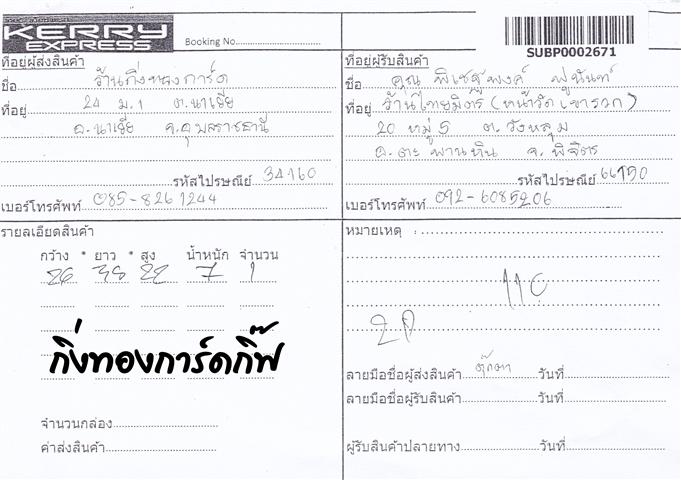 KERRY
EXPRESS
Booking No
SUBP0002671
ที่อยู่ผู้ส่งสินค้า
ชื่อ ร้านกิ่งทองการ์ด
ที่อยู่ 24 ม.1 ต.นาเยีย
อ.นาเยีย จ.อุบลราชธานี
รหัสไปรษณีย์ 34160
เบอร์โทรศัพท์ 085-8261244
ที่อยู่ผู้รับสินค้า
ชื่อ คุณ พิเชฐพงค์ ฟูนันท์
ที่อยู่ ร้านไทยมิตร (หน้าวัดเขารวก)
20 หมู่ 5 ต.วังหลุม
อ.ตะพานหิน จ.พิจิตร
รหัสไปรษณีย์ 66150
เบอร์โทรศัพท์ 092-6085206
รายละเอียดสินค้า
กว้าง * ยาว * สูง น้ำหนัก จำนวน
26 38 22 7 1
กิ่งทองการ์ดกิ๊ฟ
จำนวนกล่อง
ค่าส่งสินค้า
หมายเหตุ :
110
ลายมือชื่อผู้ส่งสินค้า ตุ๊กตา วันที่
ลายมือชื่อผู้รับสินค้า วันที่
ผู้รับสินค้าปลายทาง วันที่